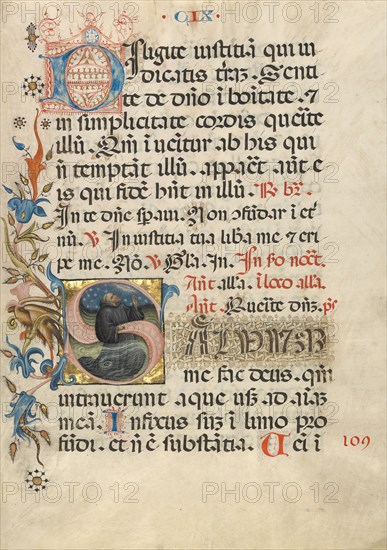 · CIX ·
Diligite iustitiã qui iu
dicatis trã3. Senti
te de dño i boitate ⁊
in simplicitate cordis querite
illũ. Qm̃ iuẽitur ab his qui
nõ temptãt illũ. appaet autẽ e
is qui fidẽ hñt in illũ. R br̃.
In te dñe speraui. Non ɔfũdar i et
nũ. V In iustitia tua libera me ⁊ eri
pe me. Nõ. V Gla. In. In fo noct.
Ant alla. i loco alla.
Ant. Querite dñ3. ps
SALVUM
me fac deus. qm̃
intrauerunt aque usq3 ad aĩaz
meã. Infixus su3 i limo pro
fũdi. et ñ ẽ substãtia. Ueni i
109